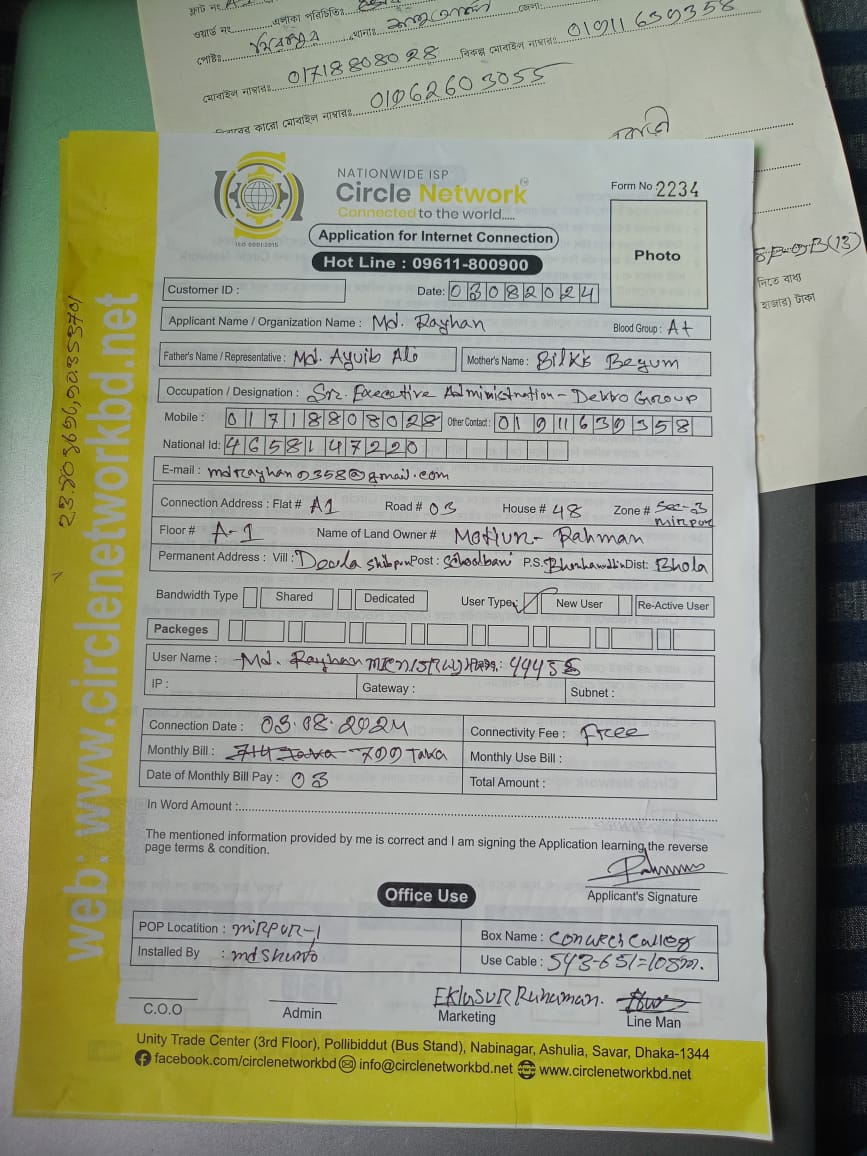 ওয়ার্ড নং
পোষ্টঃ মিরপুর থানাঃ জেলা:
মোবাইল নাম্বারঃ 01718808028 বিকল্প মোবাইল নাম্বারঃ 01911639358
কারো মোবাইল নাম্বারঃ
নিতে বাধ্য
হাজার) টাকা
NATIONWIDE ISP
Circle Network
Connected to the world.....
ISO 9001:2015
Form No 2234
Application for Internet Connection
Hot Line : 09611-800900
Photo
Customer ID :
Date: 03082024
Applicant Name / Organization Name : Md. Rayhan Blood Group : A+
Father's Name / Representative : Md. Ayuib Ali Mother's Name : Bilkis Begum
Occupation / Designation : Sr. Executive Administration - Dekko Group
Mobile : 01718808028 Other Contact : 01911639358
National Id: 4658147220
E-mail : mdrayhan9358@gmail.com
Connection Address : Flat # A1 Road # 03 House # 48 Zone # Sec-3 Mirpur
Floor # A-1 Name of Land Owner # Rahman
Permanent Address : Vill : Deula Shibpur Post : P.S. Dist: Bhola
Bandwidth Type Shared Dedicated User Type: New User Re-Active User
Packeges
User Name : Md. Rayhan
IP : Gateway : Subnet :
Connection Date : 03.08.2024 Connectivity Fee : Free
Monthly Bill : 700 Taka Monthly Use Bill :
Date of Monthly Bill Pay : 03 Total Amount :
In Word Amount :
The mentioned information provided by me is correct and I am signing the Application learning the reverse
page terms & condition.
Applicant's Signature
Office Use
POP Locatition : MIRPUR-1 Box Name :
Installed By : md Shunto Use Cable : 543-651=108m.
C.O.O Admin Marketing Line Man
Unity Trade Center (3rd Floor), Pollibiddut (Bus Stand), Nabinagar, Ashulia, Savar, Dhaka-1344
facebook.com/circlenetworkbd info@circlenetworkbd.net www.circlenetworkbd.net
web: www.circlenetworkbd.net